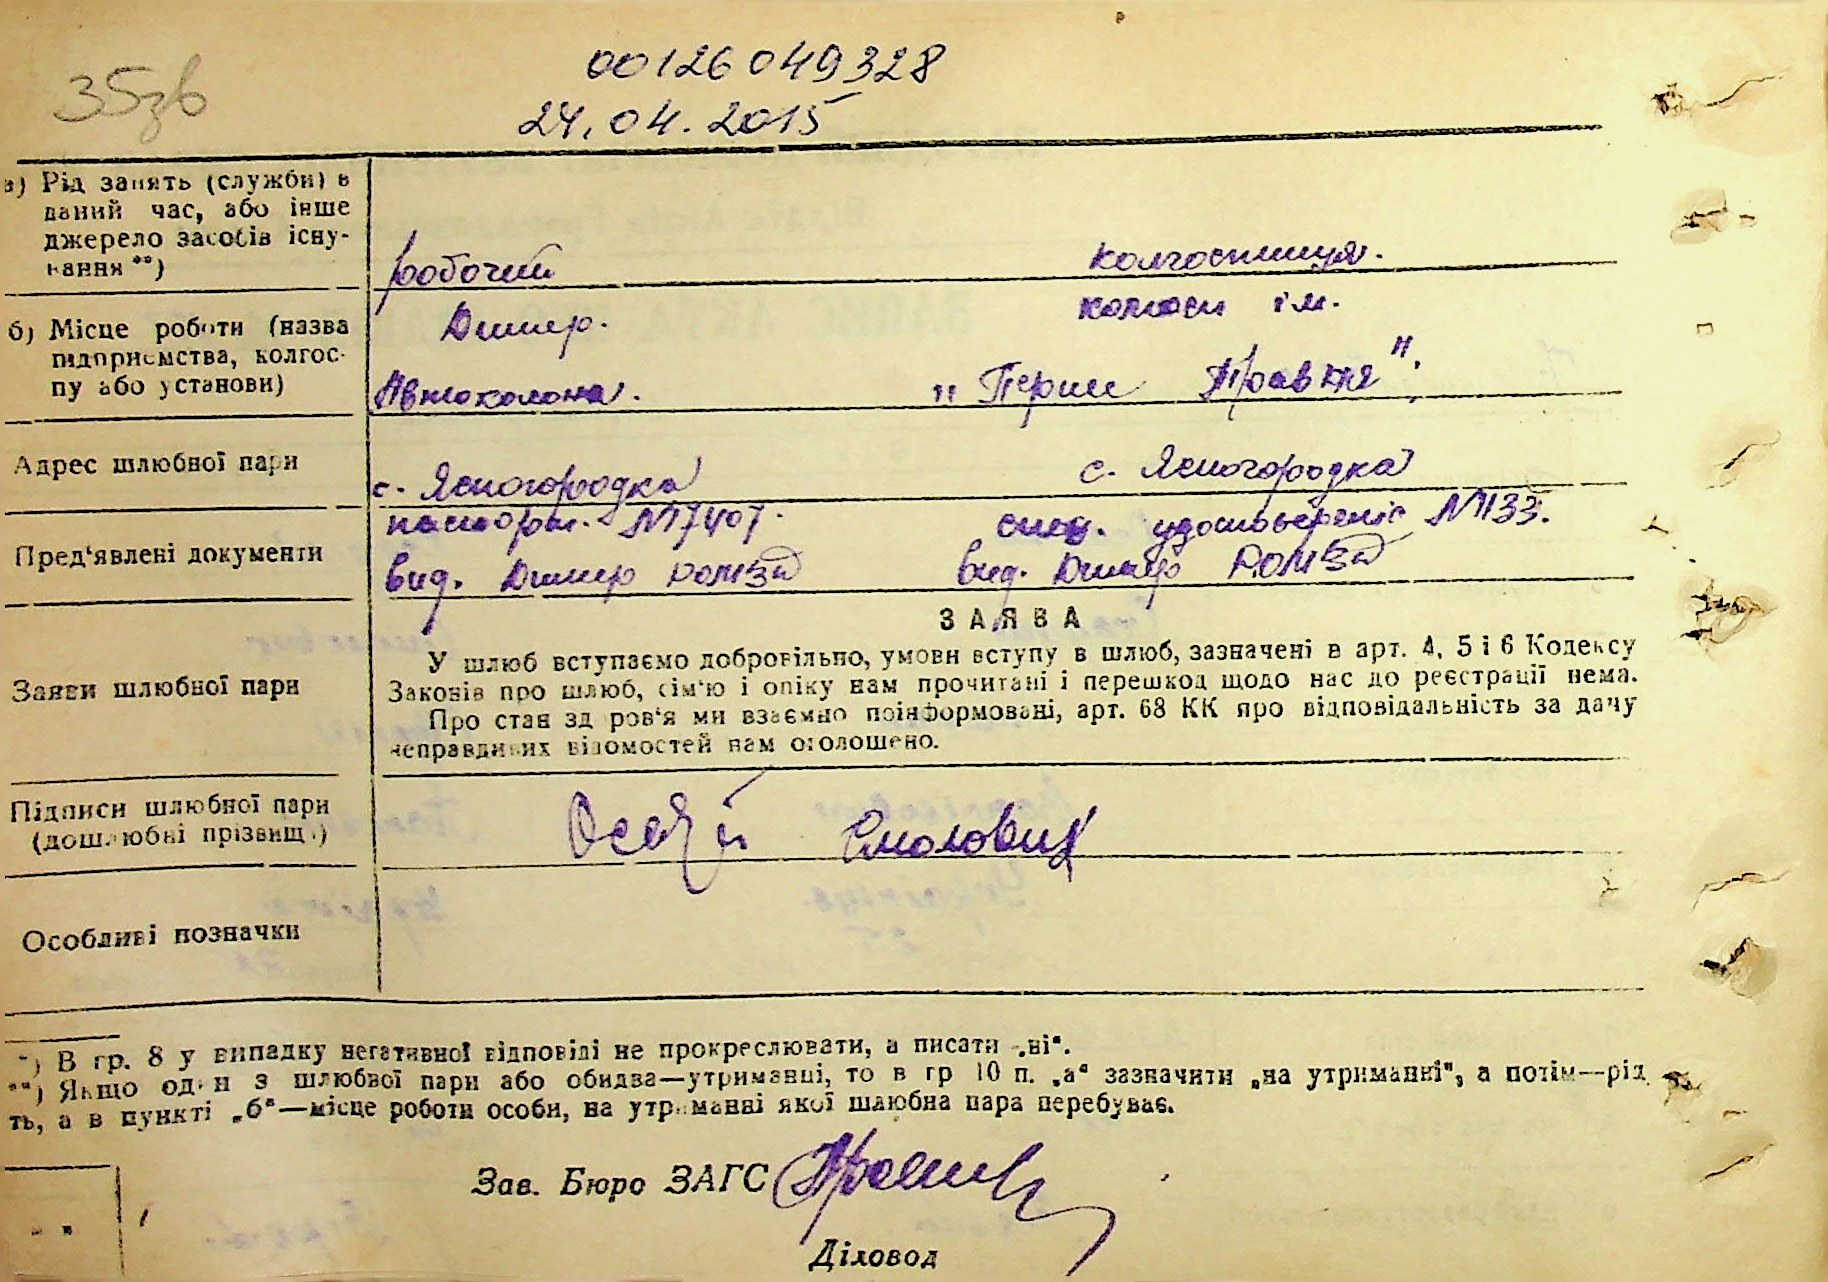 35зв
00126049328
24.04.2015
а) Рід занять (служби) в даний час, або інше джерело засобів існування **)
робочий
колгоспниця.
б) Місце роботи (назва підприємства, колгоспу або установи)
Димер.
колгосп ім.
Автоколона.
„Перше Травня".
Адрес шлюбної пари
с. Ясногородка
с. Ясногородка
Пред'явлені документи
паспорт. №7407.
удостовереніє №133.
вид. Димер РОМВД
вид. Димер РОМВД
Заяви шлюбної пари
ЗАЯВА
У шлюб вступаємо добровільно, умови вступу в шлюб, зазначені в арт. 4, 5 і 6 Кодексу
Законів про шлюб, сім'ю і опіку нам прочитані і перешкод щодо нас до реєстрації нема.
Про стан здоров'я ми взаємно поінформовані, арт. 68 КК про відповідальність за дачу
неправдивих відомостей нам оголошено.
Підписи шлюбної пари
(дошлюбні прізвища)
Смолович
Особливі позначки
*) В гр. 8 у випадку негативної відповіді не прокреслювати, а писати „ні".
**) Якщо один з шлюбної пари або обидва—утриманці, то в гр 10 п. „а" зазначити „на утриманні", а потім—рід
ть, а в пункті „б"—місце роботи особи, на утриманні якої шлюбна пара перебуває.
Зав. Бюро ЗАГС
Діловод